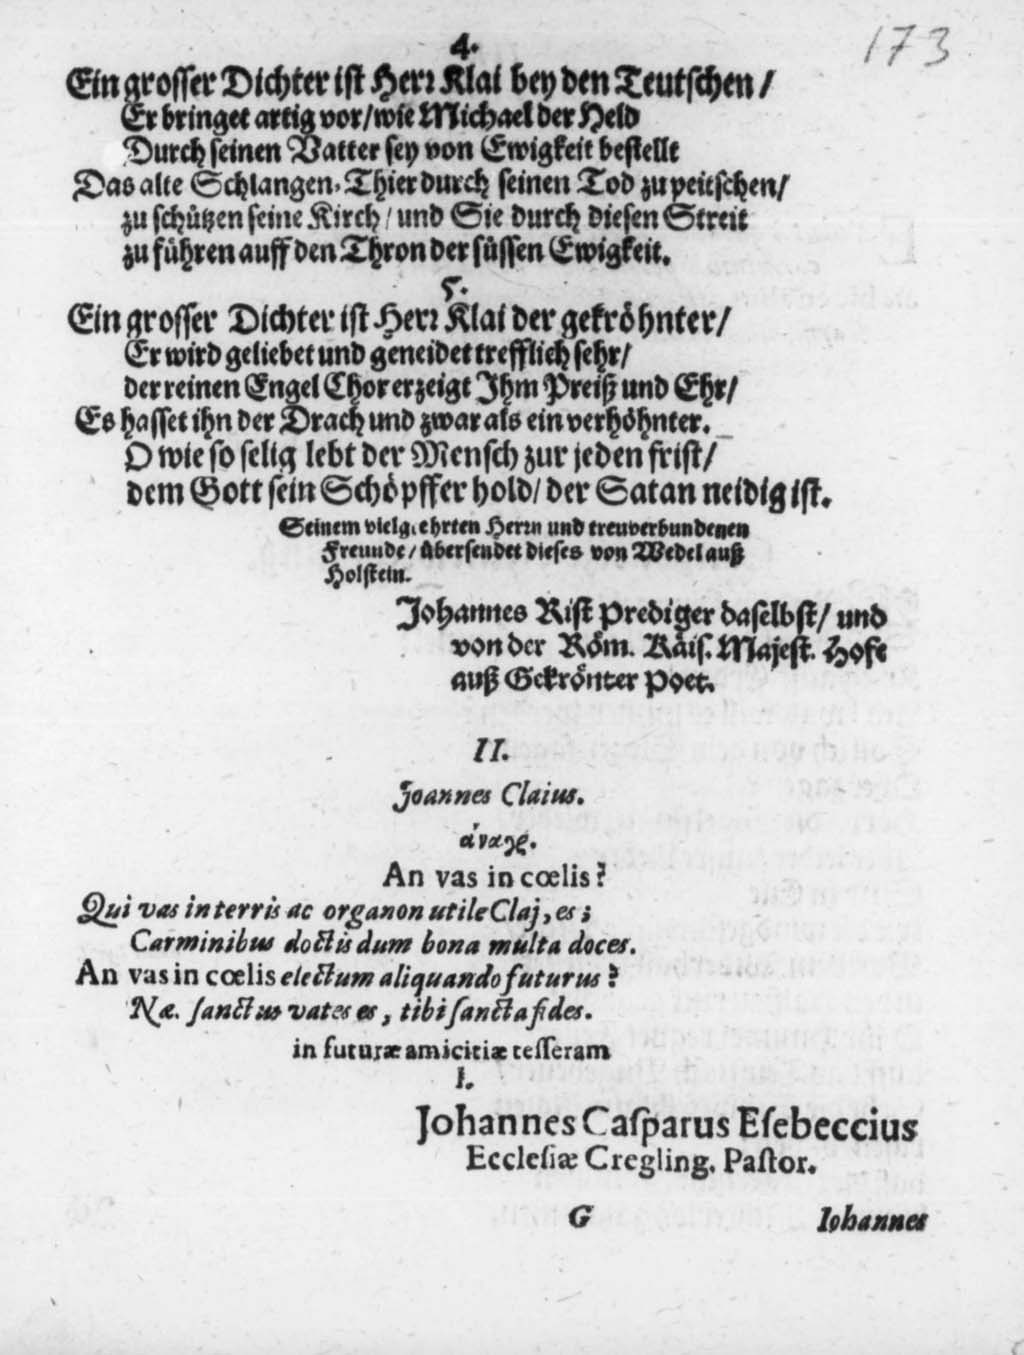 173
4.
Ein grosser Dichter ist Herr Klai bey den Teutschen /
Er bringet artig vor / wie Michael der Held
Durch seinen Vatter sey von Ewigkeit bestellt
Das alte Schlangen-Thier durch seinen Tod zu peitschen /
zu schützen seine Kirch / und Sie durch diesen Streit
zu führen auff den Thron der süssen Ewigkeit.
5.
Ein grosser Dichter ist Herr Klai der gekröhnter /
Er wird geliebet und geneidet trefflich sehr /
der reinen Engel Chor erzeigt Ihm Preiß und Ehr /
Es hasset ihn der Drach und zwar als ein verhöhnter.
O wie so selig lebt der Mensch zur jeden frist /
dem Gott sein Schöpffer hold / der Satan neidig ist.
Seinem vielgeehrten Herrn und treuverbundenen
Freunde / übersendet dieses von Wedel auß
Holstein.
Johannes Rist Prediger daselbst / und
von der Röm. Käis. Majest. Hofe
auß Gekrönter Poet.
II.
Joannes Claius.
ἀναγρ.
An vas in cœlis?
Qui vas in terris ac organon utile Claj, es;
Carminibus doctis dum bona multa doces.
An vas in cœlis electum aliquando futurus?
Næ. ſanctus vates es, tibi ſancta fides.
in futuræ amicitiæ teſſeram
l.
Johannes Caſparus Eſebeccius
Eccleſiæ Cregling. Paſtor.
G
Iohannes